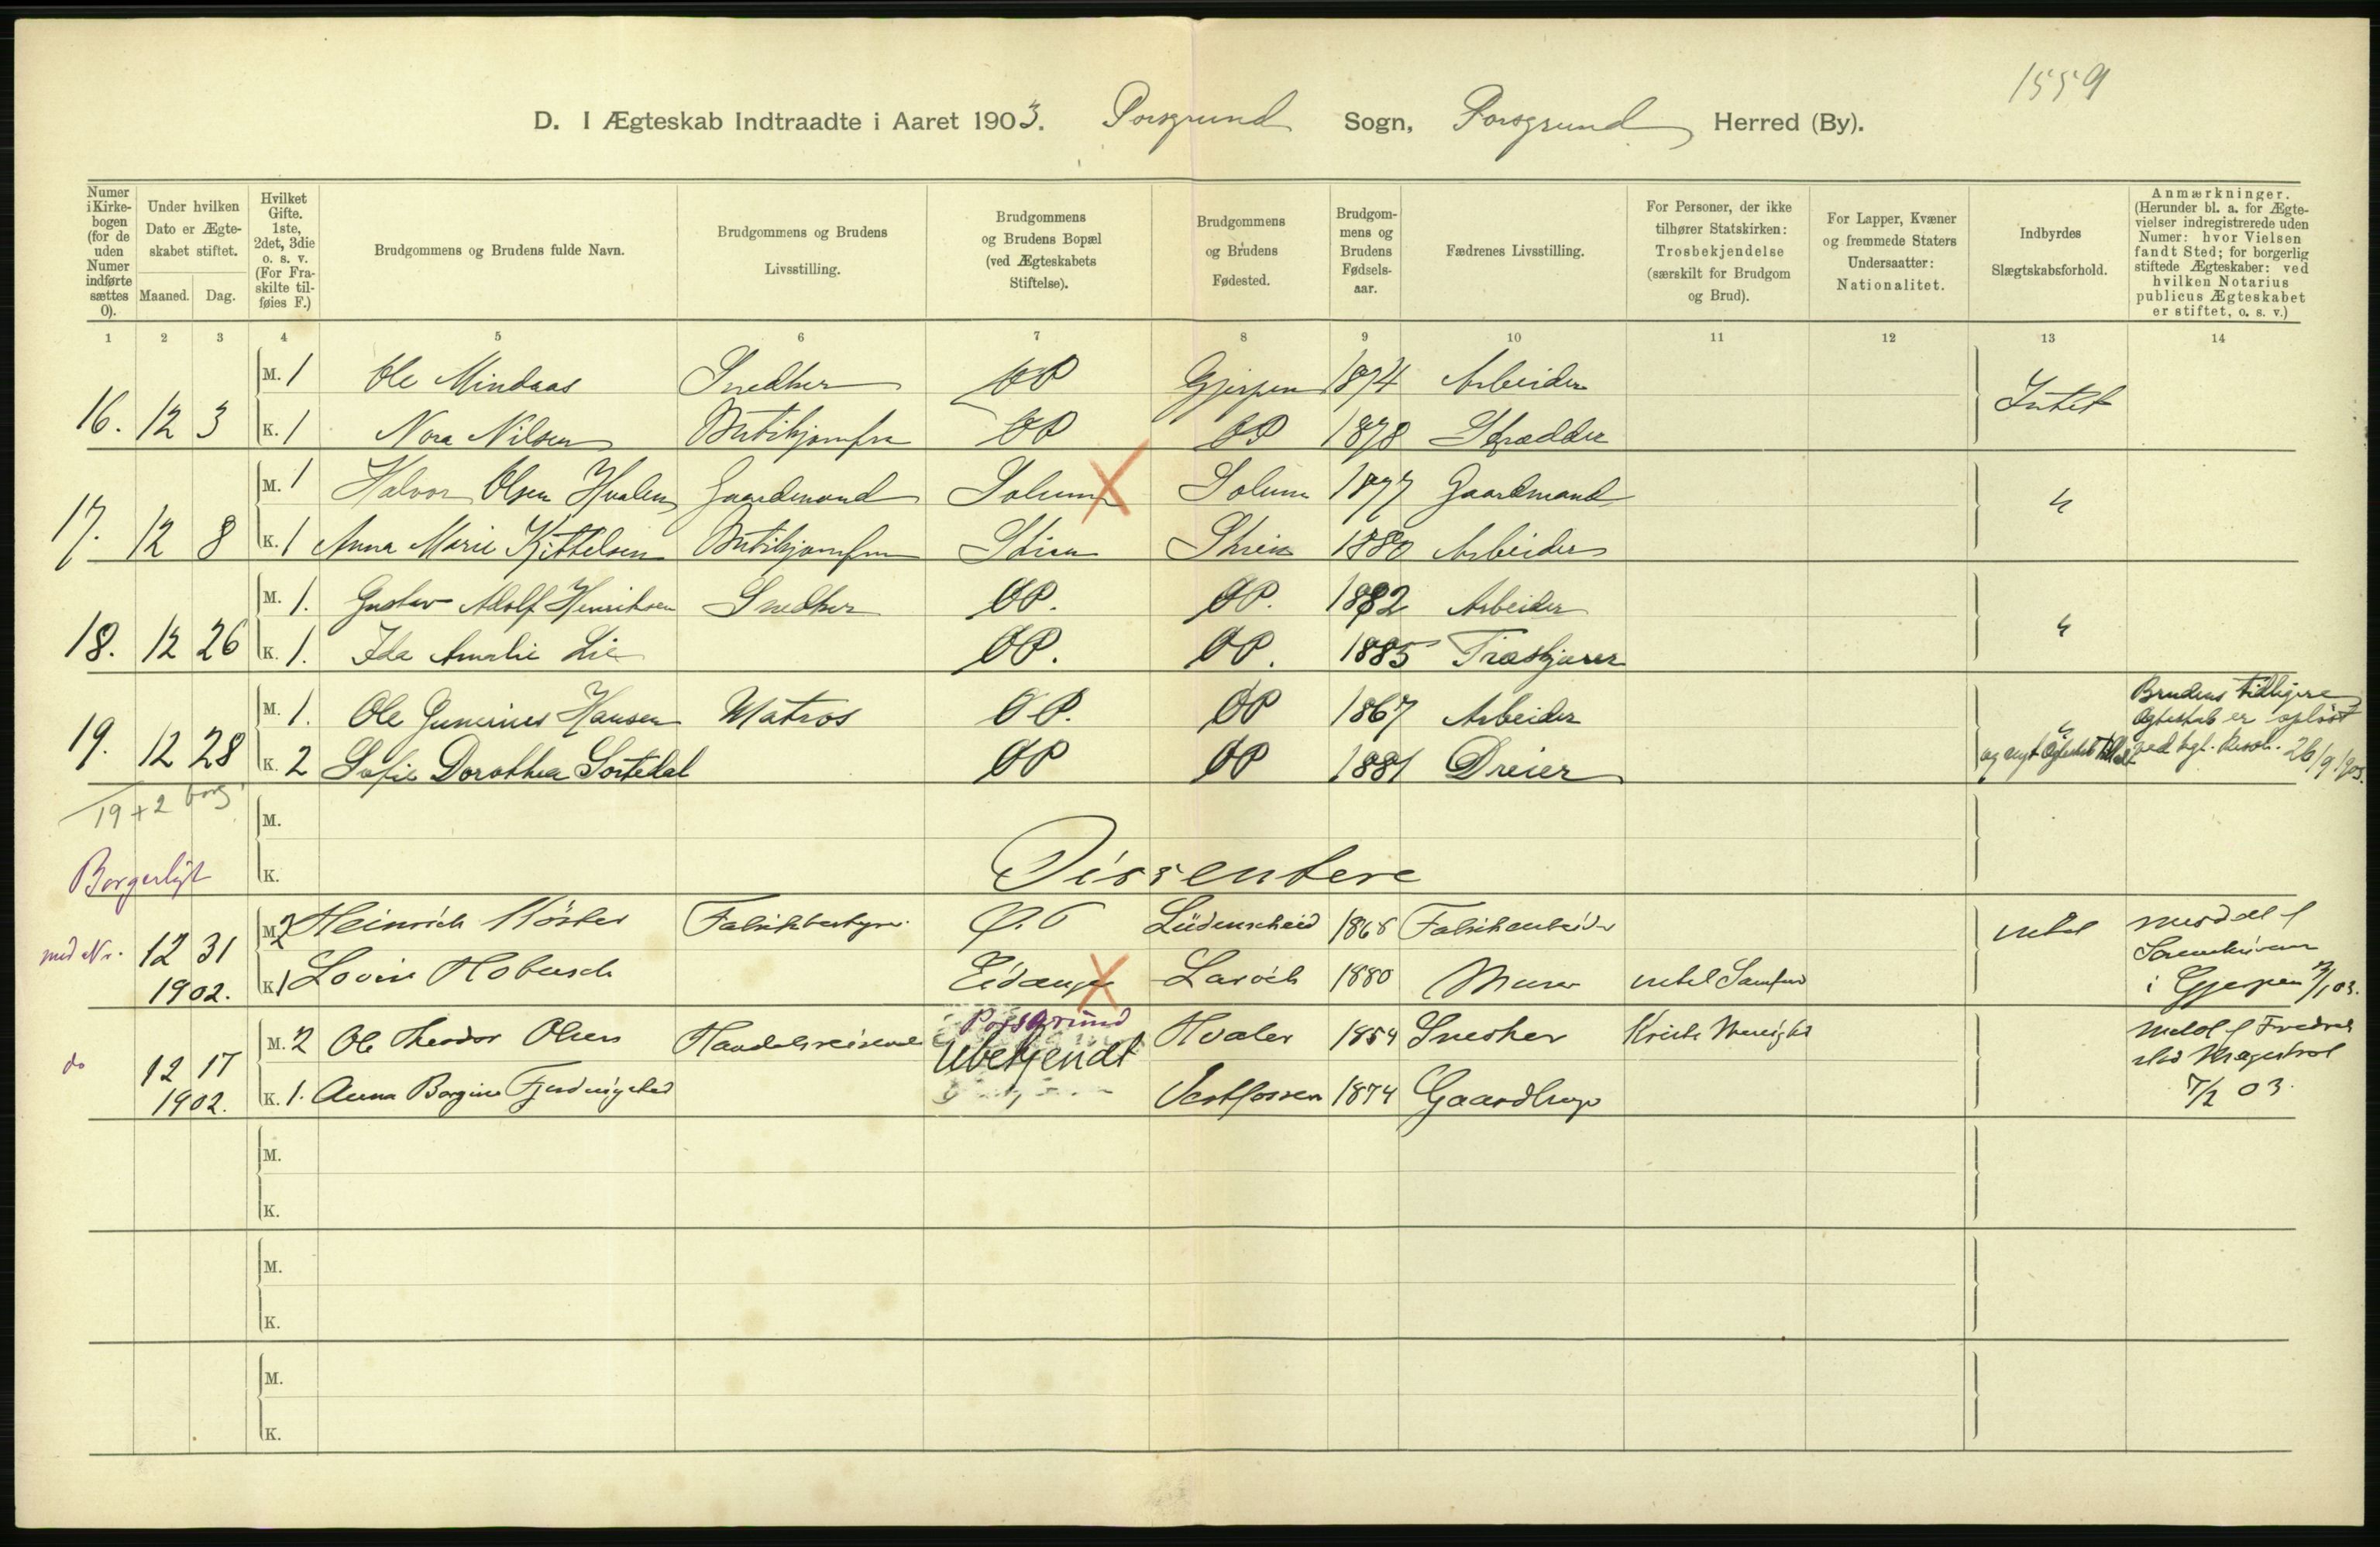 1559
D. I Ægteskab Indtraadte i Aaret 1903. Porsgrund Sogn, Porsgrund Herred (By).
Numer i Kirkebogen (for de uden Numer indførte sættes 0).
Under hvilken Dato er Ægteskabet stiftet.
Maaned. Dag.
Hvilket Gifte. 1ste, 2det, 3die o. s. v. (For Fraskilte tilføies F.)
Brudgommens og Brudens fulde Navn.
Brudgommens og Brudens Livsstilling.
Brudgommens og Brudens Bopæl (ved Ægteskabets Stiftelse).
Brudgommens og Brudens Fødested.
Brudgommens og Brudens Fødselsaar.
Fædrenes Livsstilling.
For Personer, der ikke tilhører Statskirken: Trosbekjendelse (særskilt for Brudgom og Brud).
For Lapper, Kvæner og fremmede Staters Undersaatter: Nationalitet.
Indbyrdes Slægtskabsforhold.
Anmærkninger. (Herunder bl. a. for Ægtevielser indregistrerede uden Numer: hvor Vielsen fandt Sted; for borgerlig stiftede Ægteskaber: ved hvilken Notarius publicus Ægteskabet er stiftet, o. s. v.)
1 2 3 4 5 6 7 8 9 10 11 12 13 14
M. 1 Ole Mindaas Snedker ØP Gjerpen 1874 Arbeider Intet
16. 12 3 K. 1 Nora Nilsen Butikjomfru ØP ØP 1878 Skrædder
M. 1 Halvor Olsen Hvalen Gaardmand Solum Solum 1877 Gaardmand "
17. 12 8 K. 1 Anna Marie Kittelsen Butikjomfru Skien Skien 1880 Arbeider
M. 1. Gustav Adolf Henriksen Snedker ØP. ØP. 1882 Arbeider "
18. 12 26 K. 1. Ida Amalie Lie ØP. ØP. 1885 Træskjærer
M. 1. Ole Gunerius Hansen Matros ØP. ØP 1867 Arbeider " Brudens tidligere Ægteskab er opløst
19. 12 28 K. 2 Sofie Dorothea Sortedal ØP ØP 1881 Dreier og nyt Ægteskab tilladt ved kgl. Resol. 26/9 1903.
19 + 2 borg.
M.
Borgerligt K. Dissentere
M. 2 Heinrich Köster Fabrikbestyrer Lüdenscheid 1868 Fabrikarbeider intet
med Nr. 12 31
1902. K. 1 Lovise Eidanger Larvik 1880 Murer intet Samfund i Gjerpen
Porsgrund
M. 2 Ole Theodor Olsen Handelsreisende Ubekjendt Hvaler 1854 Snedker
do 12 17
1902. K. 1. Anna Borgine Vestfossen 1874 7/2 03.
M.
K.
M.
K.
M.
K.